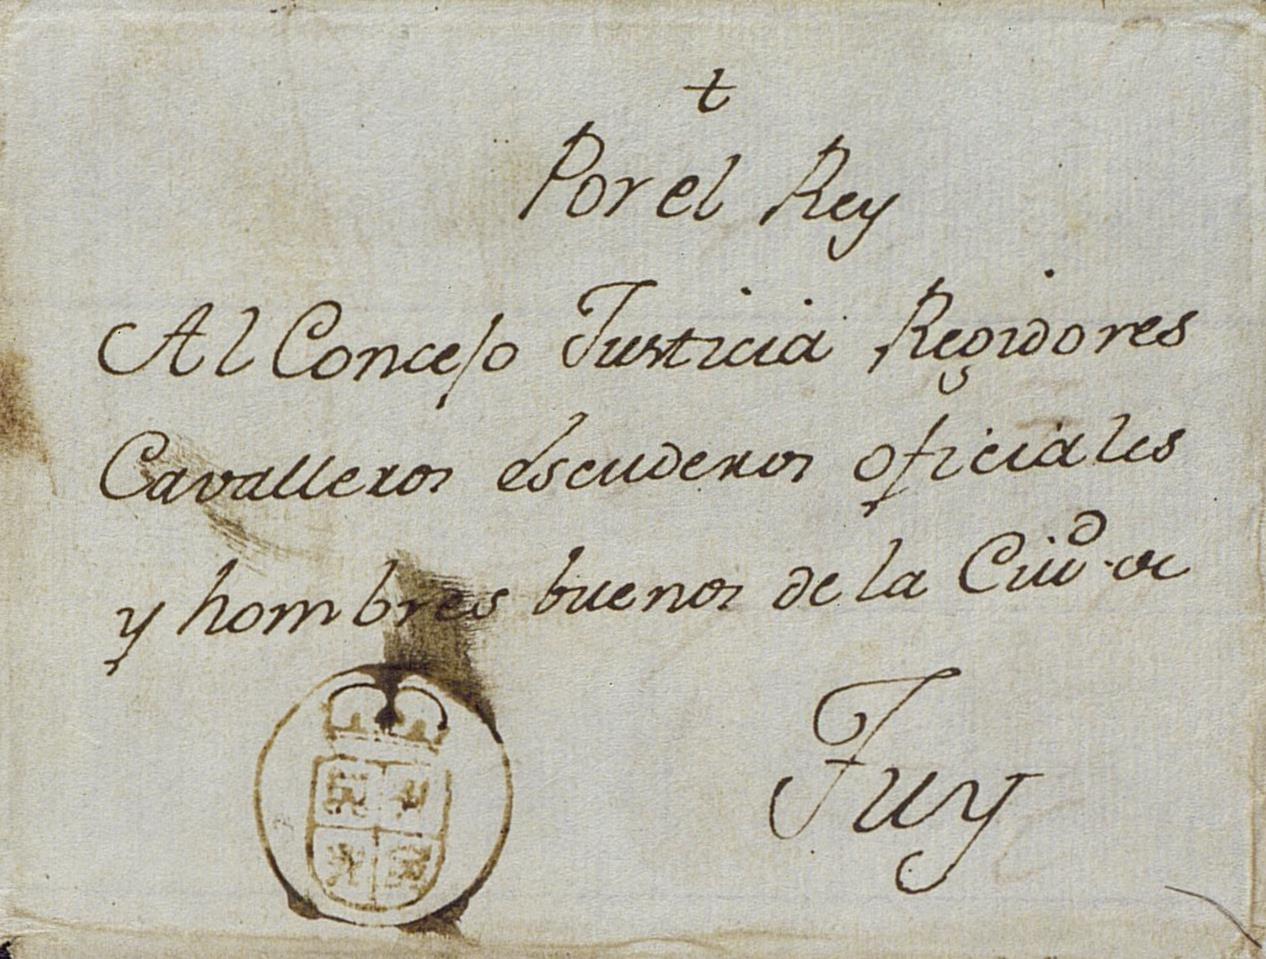 †
Por el Rey
Al Concejo Justicia Regidores
Cavalleros escuderos oficiales
y hombres buenos de la Ciud. de
Tuy